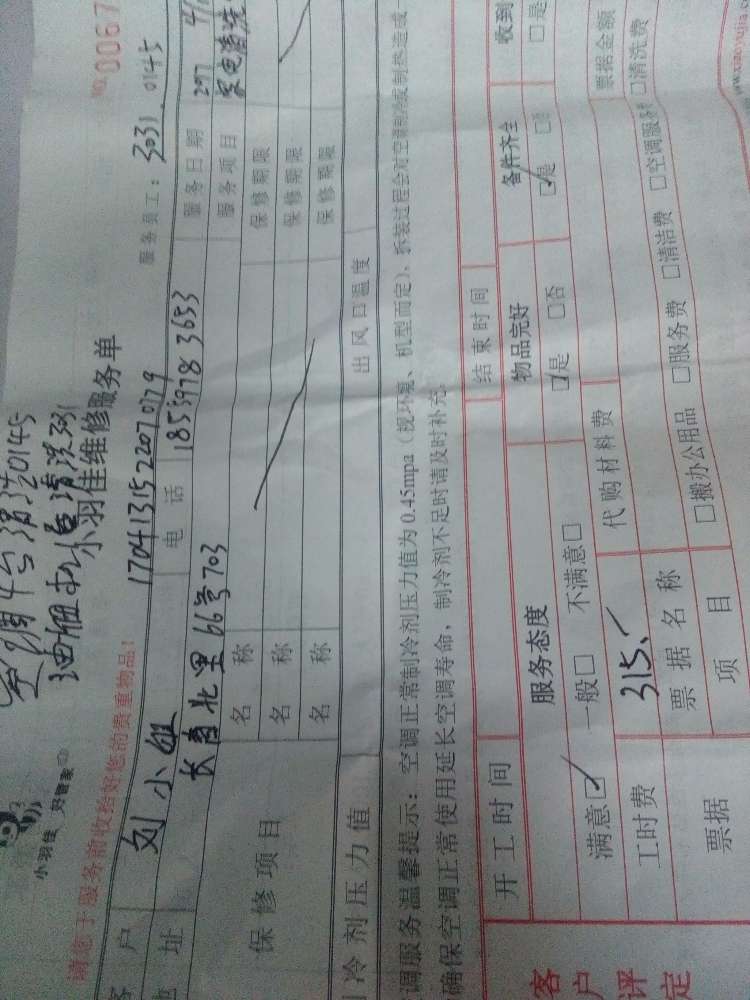 空调十台清洗0145
油烟机
清洗
小羽佳 好管家
小羽佳维修服务单
NO 0067
请您于服务前收拾好您的贵重物品！
1704131522070779
服务员工：3031. 0145
客户 刘小姐 电话 18559783653 服务日期 2017 4/1
地址 长青北里66号703 服务项目 家电清洗
保修项目
名称 保修期限
名称 保修期限
名称 保修期限
冷剂压力值 出风口温度
调服务温馨提示：空调正常制冷剂压力值为0.45mpa（视环境、机型而定）、拆装过程会对空调
确保空调正常使用延长空调寿命，制冷剂不足时请及时补充。
客户评定
开工时间 结束时间
服务态度 物品完好 备件齐全 收到
满意☑ 一般□ 不满意□ ☑是 □否 ☑是 □否 □是
工时费 315.- 代购材料费 票据金额
票据 票据名称 □搬办公用品 □服务费 □清洁费 □空调服务 □清洗费
项目
www.xiaoyujia.co